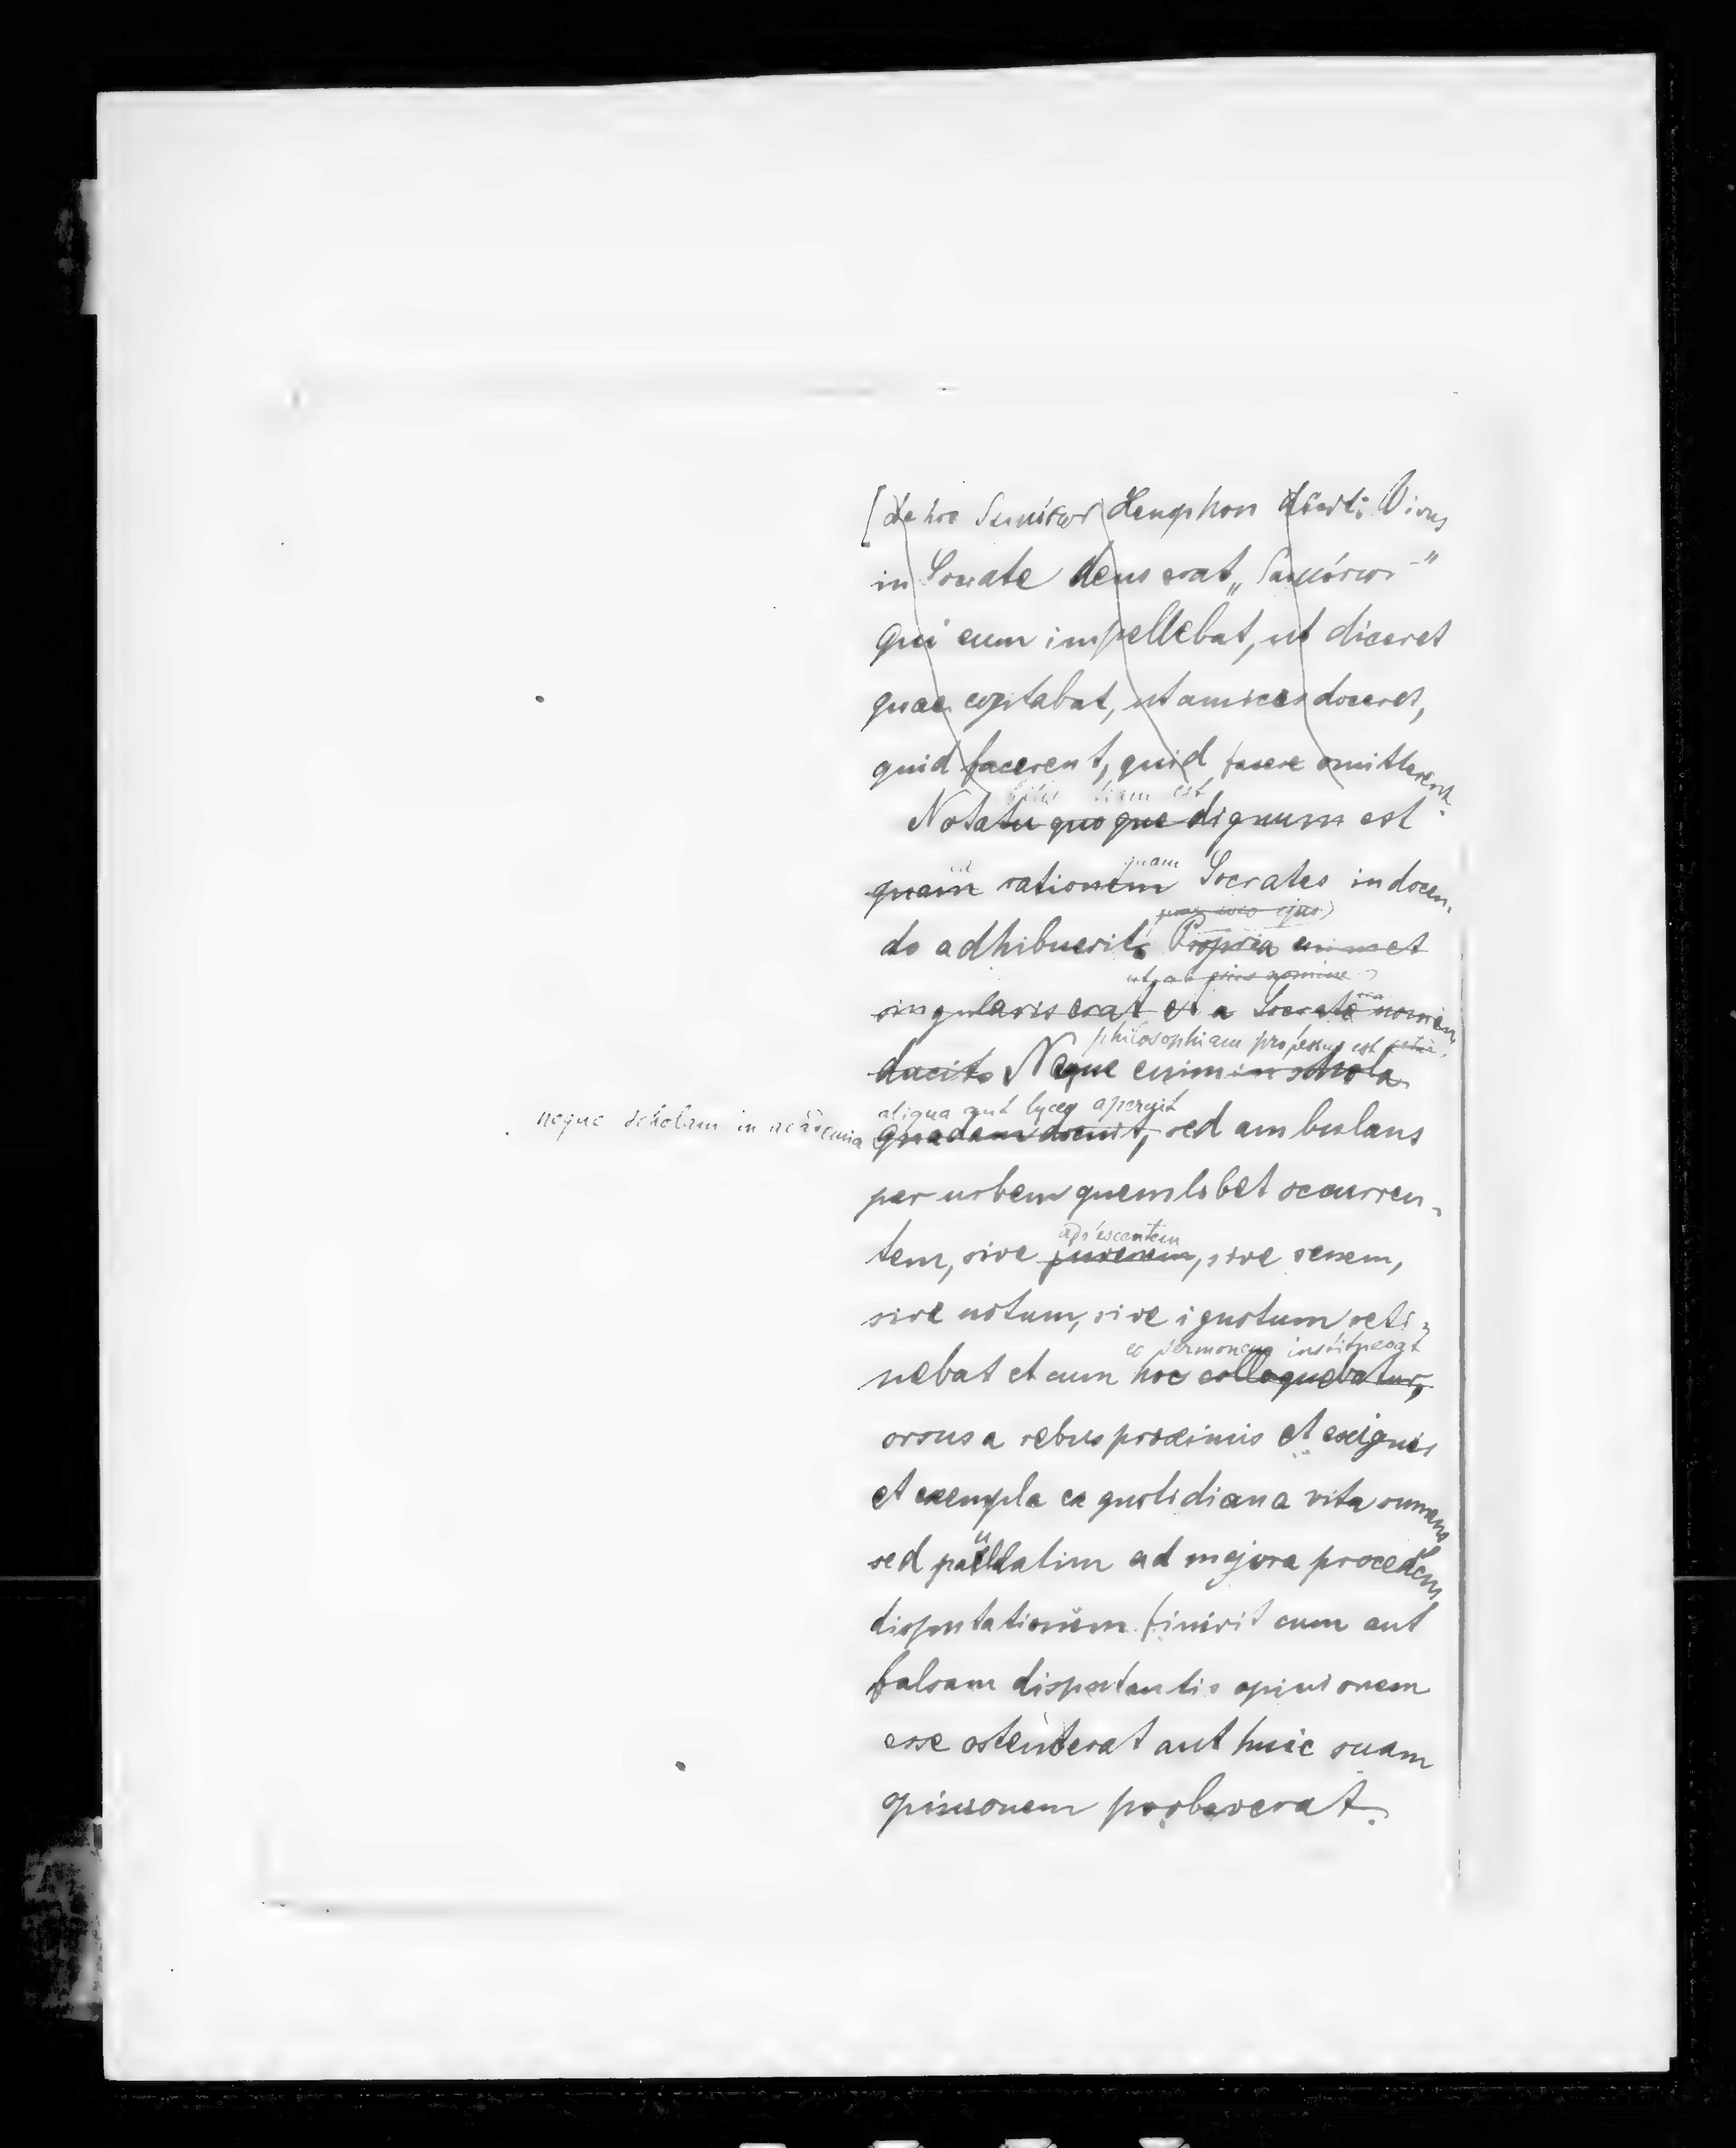 [de hoc δαιμόνιον Xenophon dicit: Divus
in Socrate deus erat „δαιμόνιον"
qui eum impellebat, ut diceret
quae cogitabat, ut amicos doceret,
quid facerent, quid facere omitterent.
est
Notatu quoque dignum est
quam
quam rationem Socrates in docen-
ejus
do adhibuerit. Propria enim et
ut ab ejus nomine
singularis erat et a Socrate nomen
philosophiam professus est
ducit. Neque enim in schola
aliqua aut lyceo aperuit
neque scholam in academia
quadam docuit, sed ambulans
per urbem quemlibet occurren-
adolescentem
tem, sive juvenem, sive senem,
sive notum, sive ignotum reti-
eo sermonem instituerat
nebat et cum hoc colloquebatur,
orsus a rebus proximis et exiguis
et exempla ex quotidiana vita sumens
sed paullatim ad majora procedens
disputationem finivit cum aut
falsam disputantis opinionem
esse ostenderat aut huic suam
opinionem probaverat.